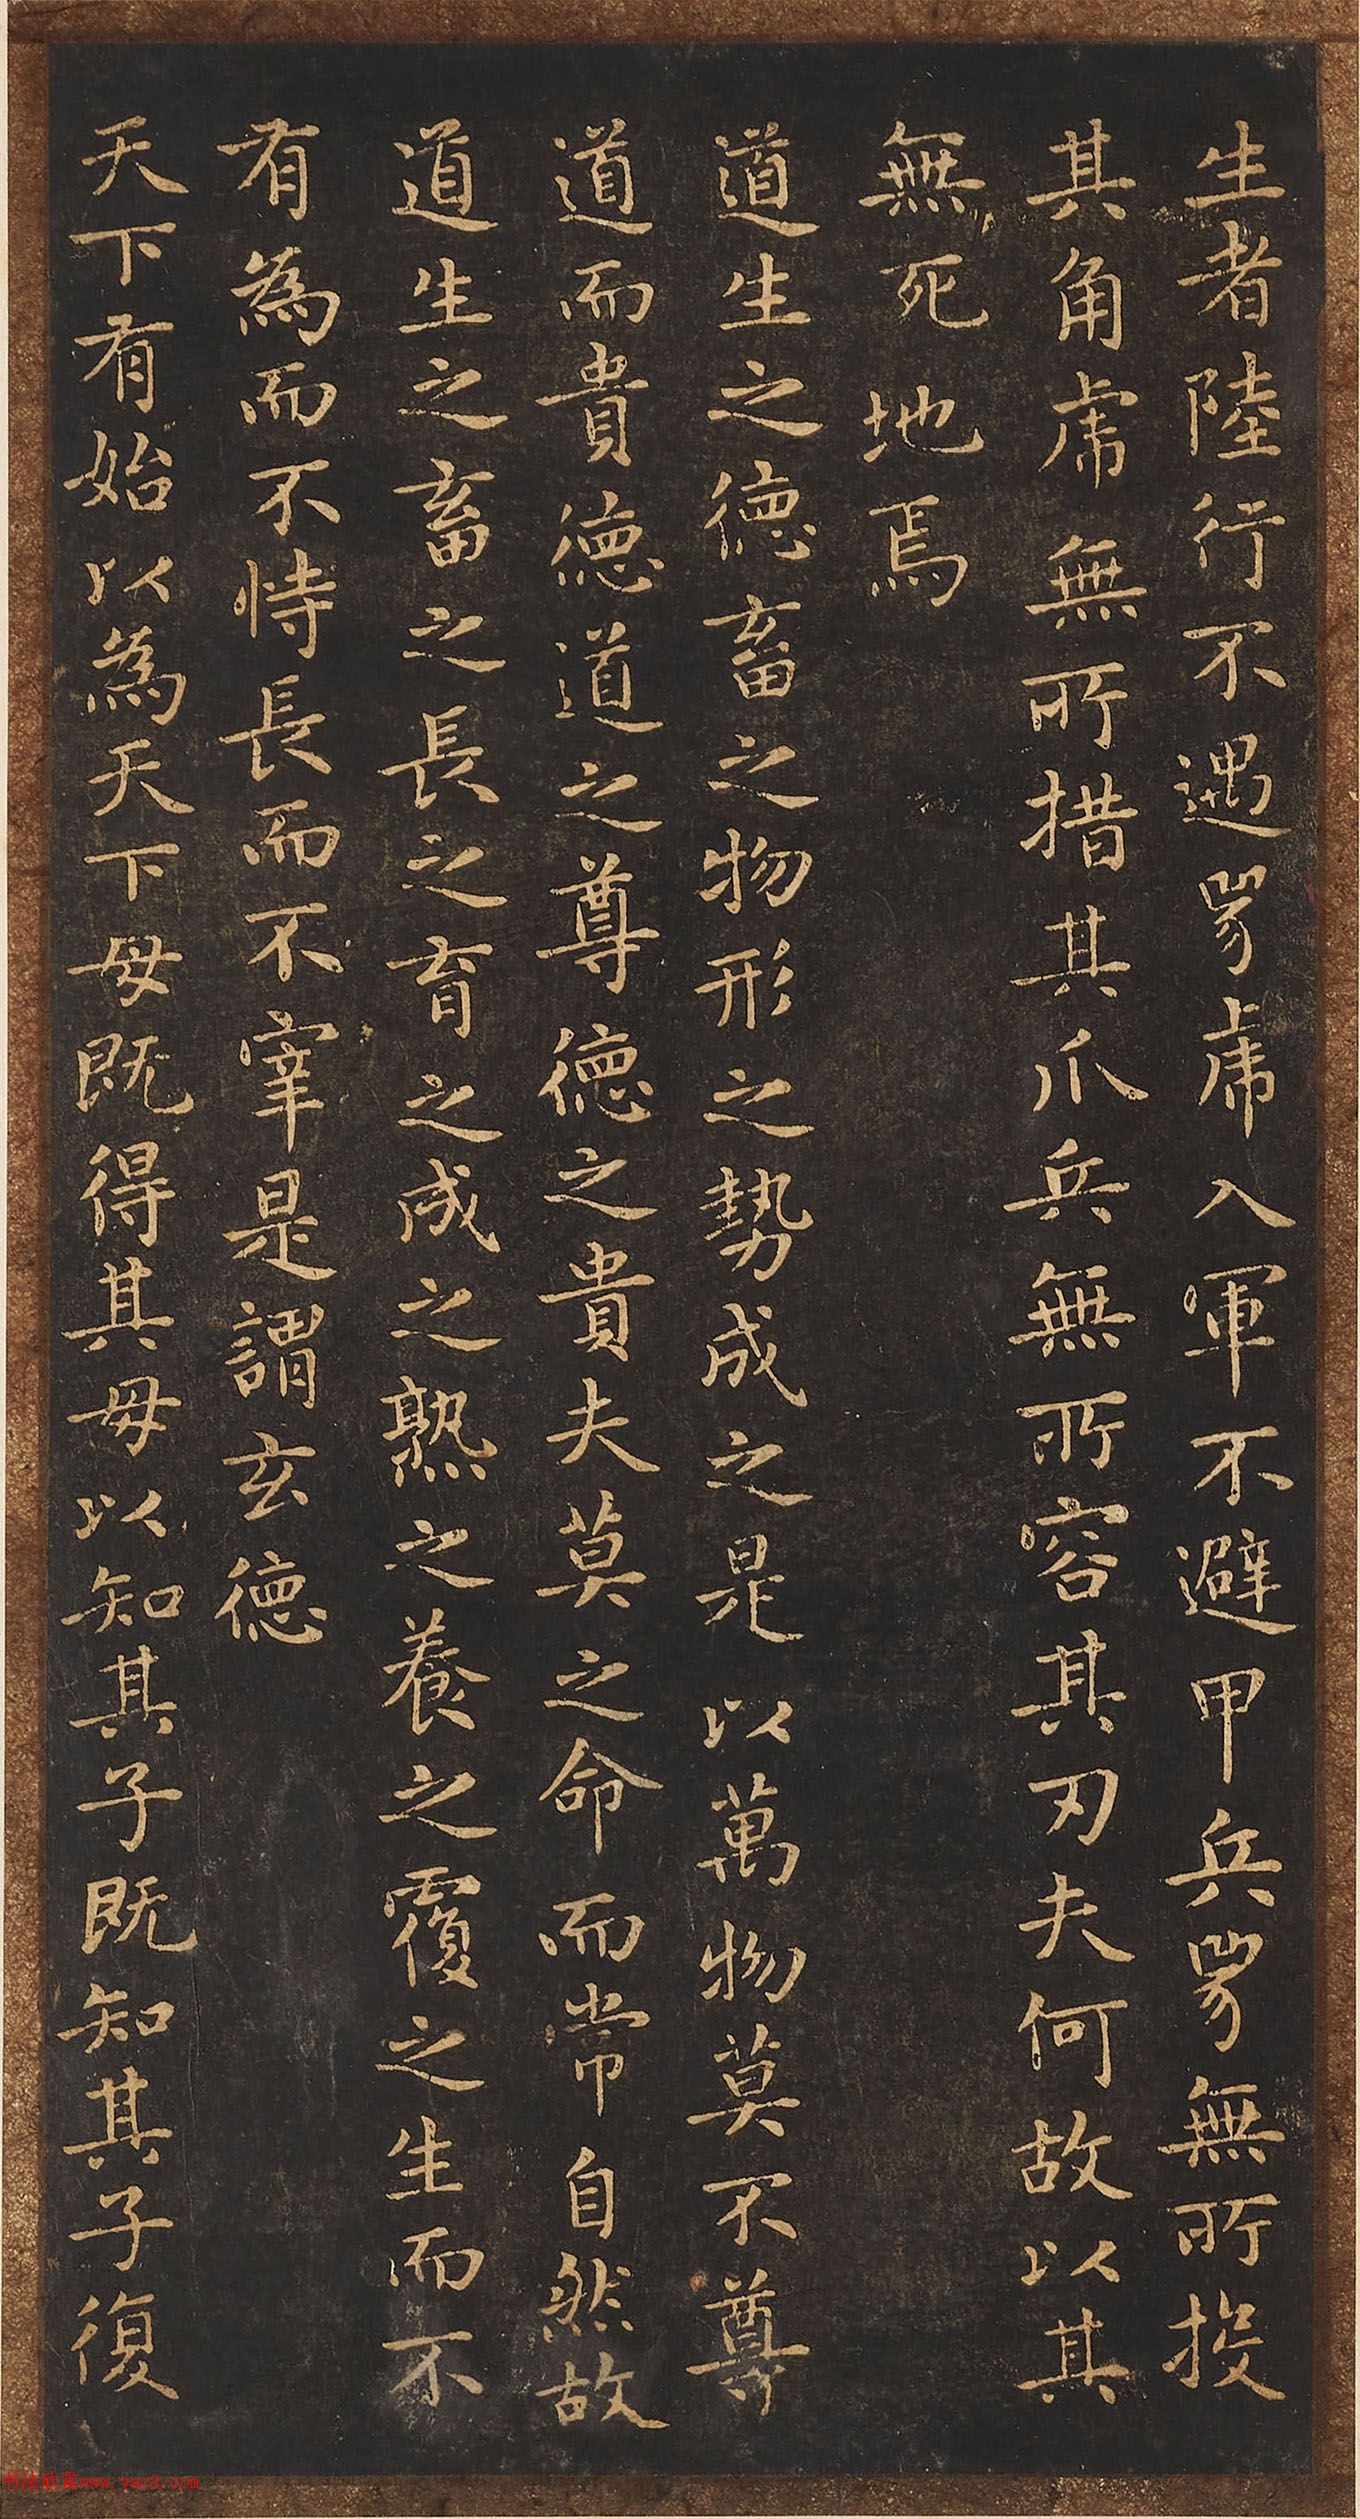 生者陸行不遇兕虎入軍不避甲兵兕無所投
其角虎無所措其爪兵無所容其刃夫何故以其
無死地焉
道生之德畜之物形之勢成之是以萬物莫不尊
道而貴德道之尊德之貴夫莫之命而常自然故
道生之畜之長之育之成之熟之養之覆之生而不
有為而不恃長而不宰是謂玄德
天下有始以為天下母既得其母以知其子既知其子復
书法欣赏www.yac8.com